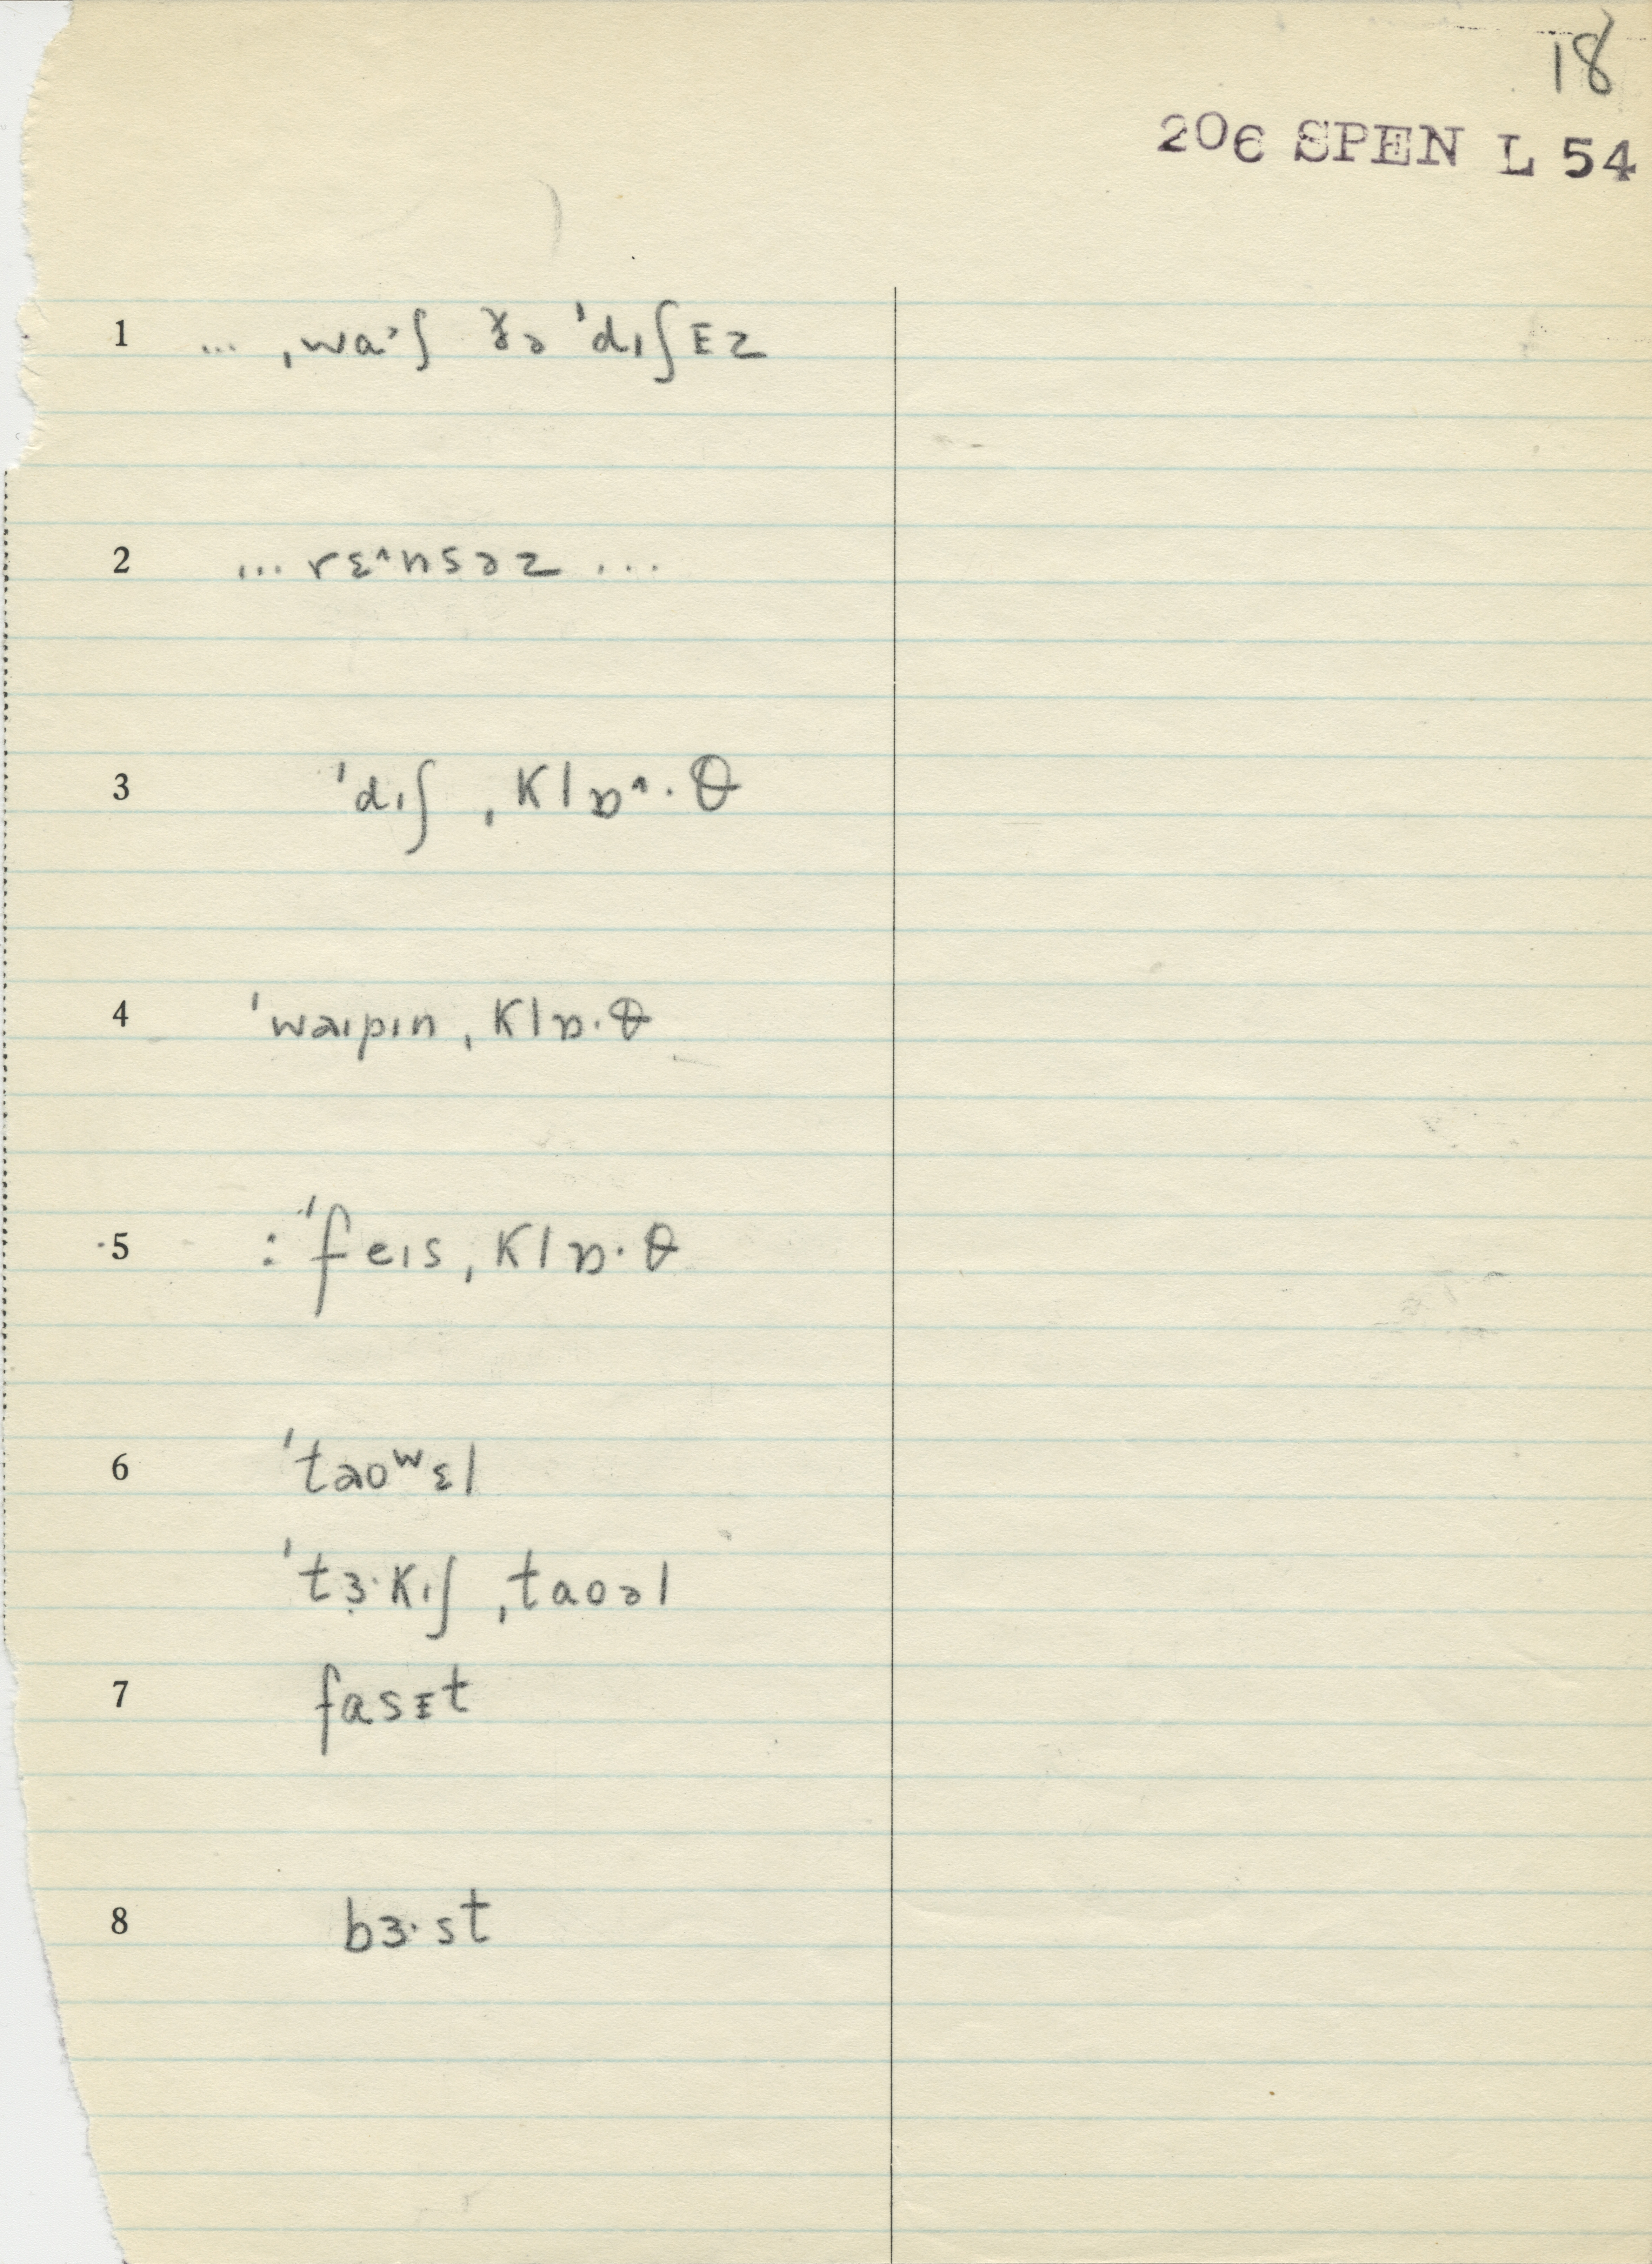 18
206 SPEN L 54
1 ... ˌwa˃ʃ ðə ˈdɪʃᵻz
2 ... rɛ^nsəz ...
3 ˈdɪʃ ˌklɒ^·θ
4 ˈwaɪpɪn ˌklɒ·θ
5 : ˈfeɪs ˌklɒ·θ
6 ˈtaoʷɛl
ˈtɜ·kɪʃ ˌtaoəl
7 fasᵻt
8 bɜ·st